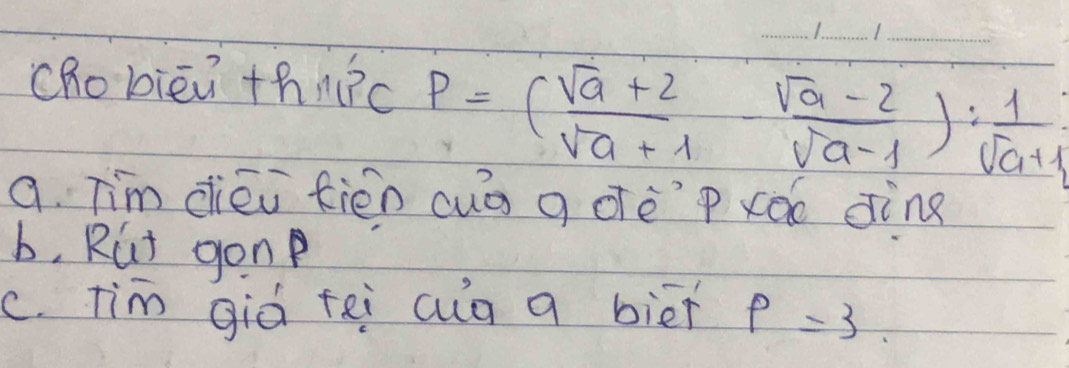 Cho biểu thức P = (√a + 2 / √a + 1 - √a - 2 / √a - 1) : 1 / √a + 1
a. Tìm điều kiện của a để P xác định
b. Rút gọn P
c. Tìm giá trị của a biết P = 3.